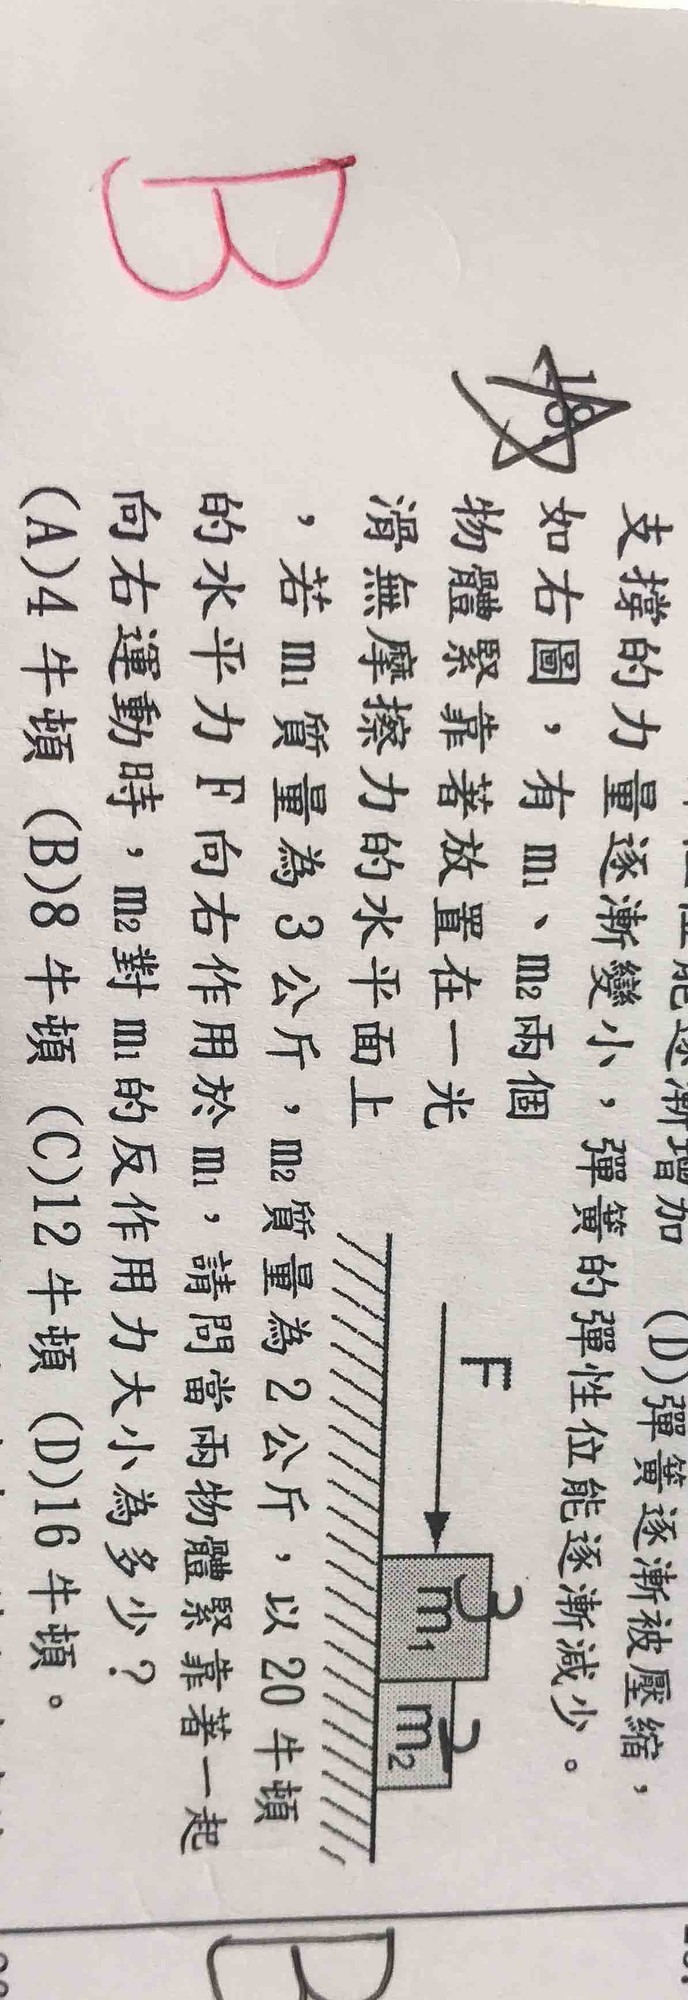 支撐的力量逐漸變小，彈簧的彈性位能逐漸減少。
性能逐漸增加 (D)彈簧逐漸被壓縮，
B
18.
如右圖，有m₁、m₂兩個
物體緊靠著放置在一光
滑無摩擦力的水平面上
，若m₁質量為3公斤，m₂質量為2公斤，以20牛頓
的水平力F向右作用於m₁，請問當兩物體緊靠著一起
向右運動時，m₂對m₁的反作用力大小為多少？
(A)4牛頓 (B)8牛頓 (C)12牛頓 (D)16牛頓。
F
3
m₁
2
m₂
B